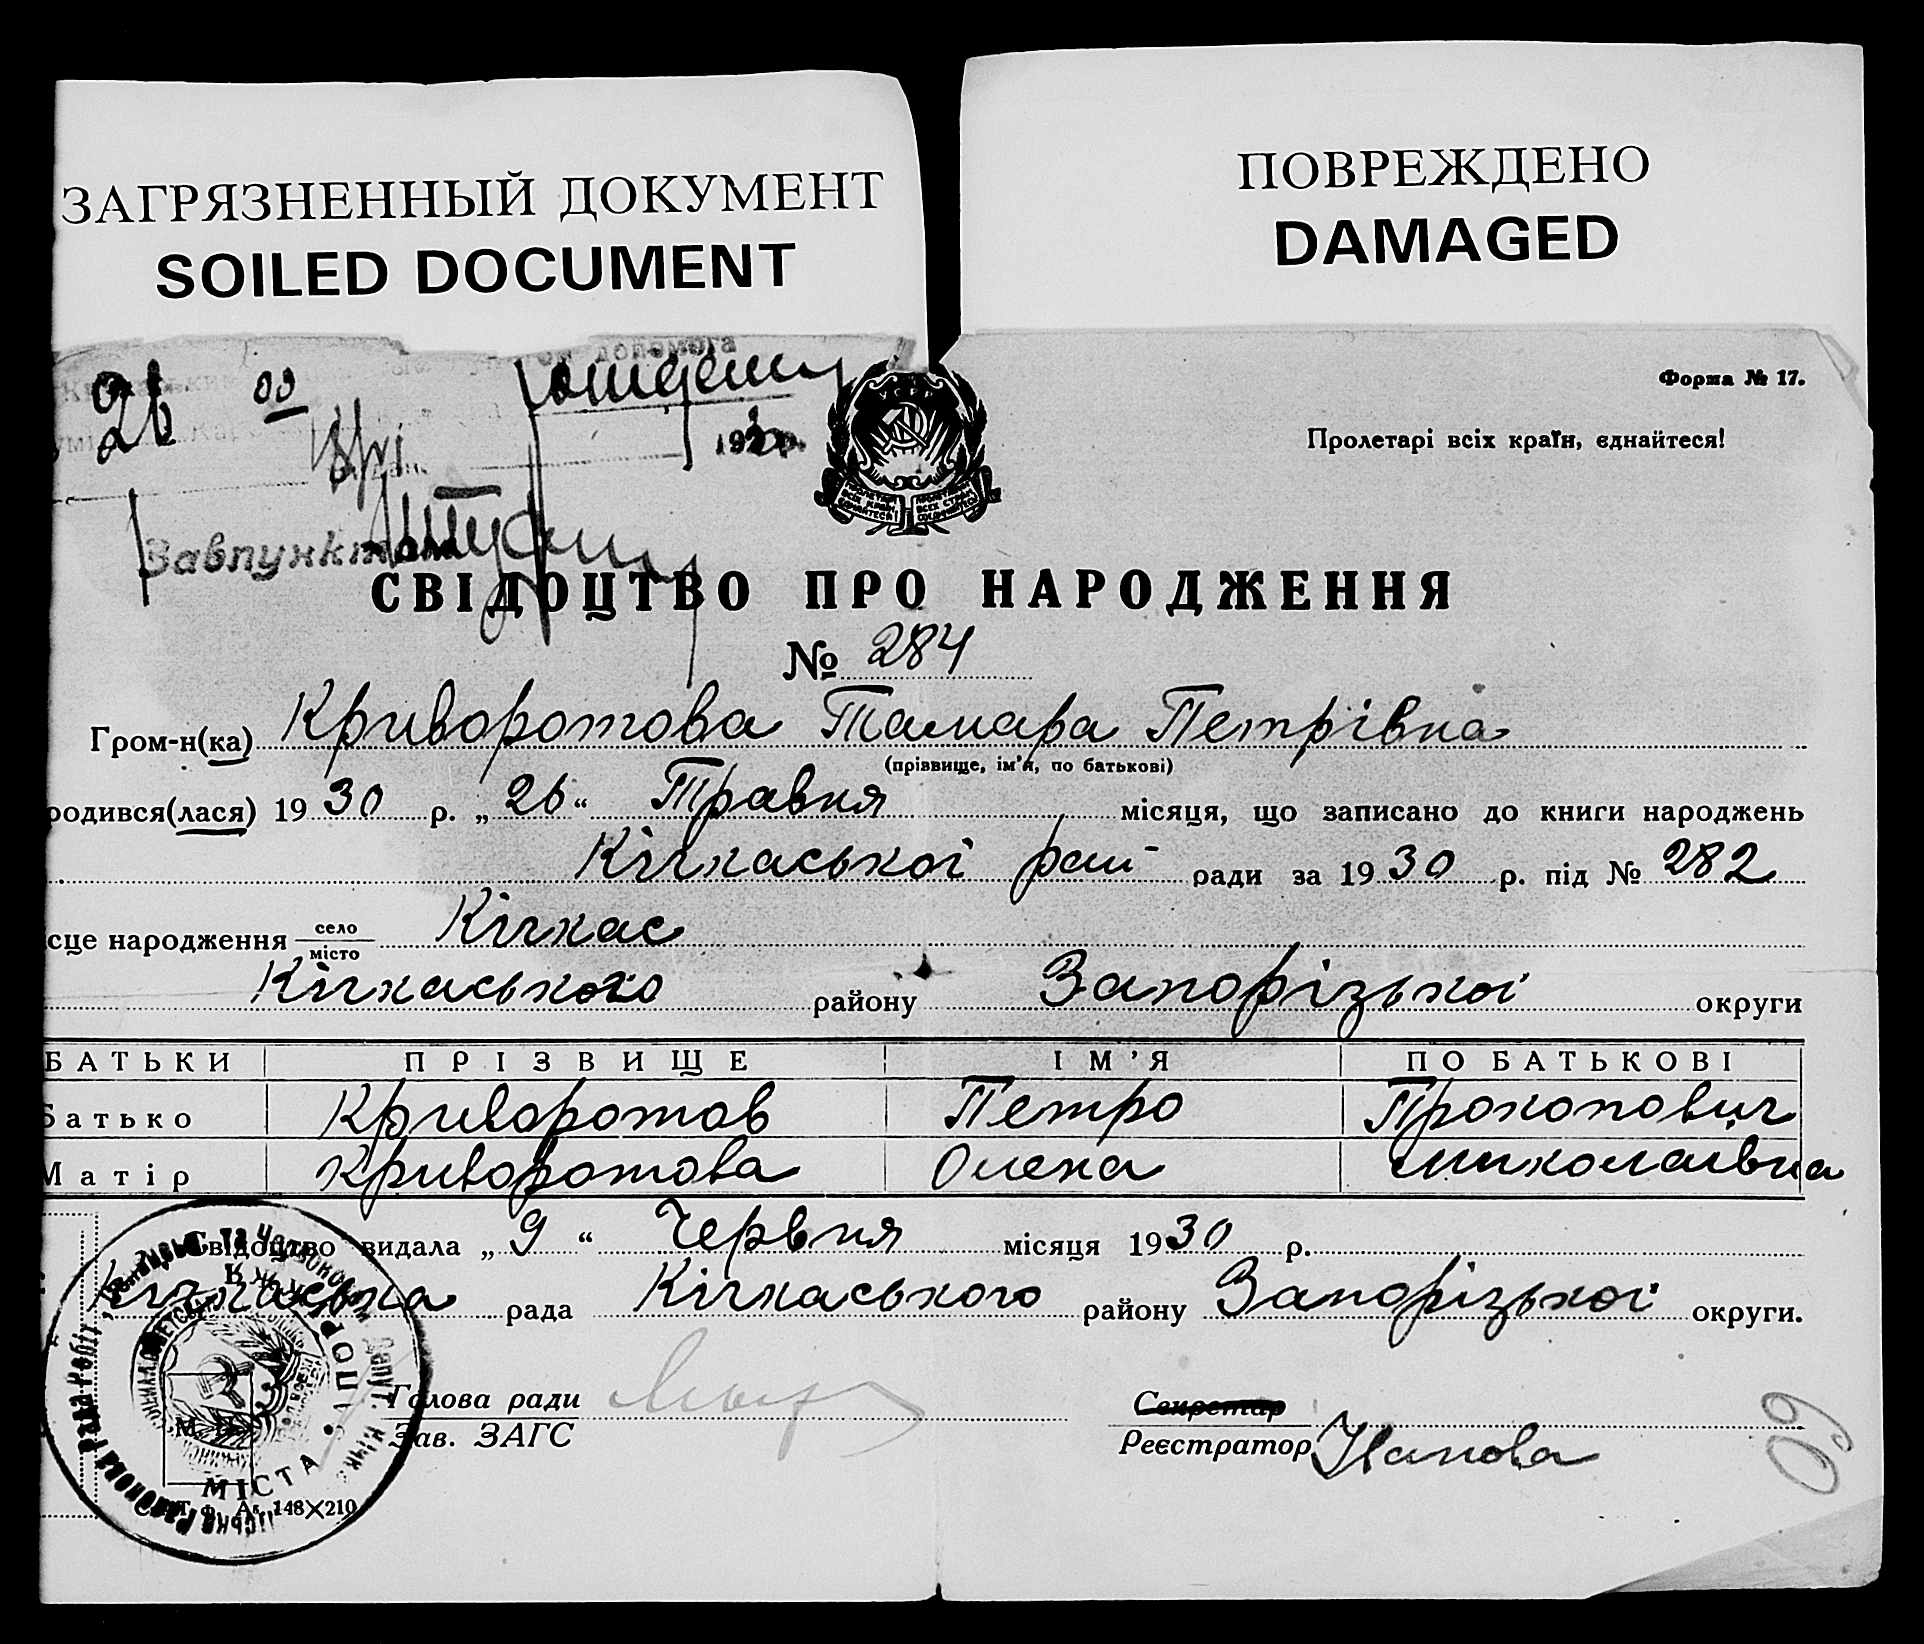 ЗАГРЯЗНЕННЫЙ ДОКУМЕНТ
SOILED DOCUMENT
ПОВРЕЖДЕНО
DAMAGED
допомога
26 00
193 р.
Завпунктом
Форма № 17.
Пролетарі всіх країн, єднайтеся!
СВІДОЦТВО ПРО НАРОДЖЕННЯ
№ 284
Гром-н(ка) Криворотова Тамара Петрівна
(прізвище, ім'я, по батькові)
родився(лася) 1930 р. „26“ Травня місяця, що записано до книги народжень
Кічкаської рай ради за 1930 р. під № 282
сце народження село Кічкас
місто
Кічкаського району Запорізької округи
БАТЬКИ ПРІЗВИЩЕ ІМ'Я ПО БАТЬКОВІ
Батько Криворотов Петро Прокопович
Матір Криворотова Олена Миколаївна
Свідоцтво видала „9“ Червня місяця 1930 р.
Кічкаська рада Кічкаського району Запорізької округи.
Голова ради
Зав. ЗАГС
Секретар
Реєстратор Іванова
М.
МІСТА
Ст. ф. А5 148×210
60